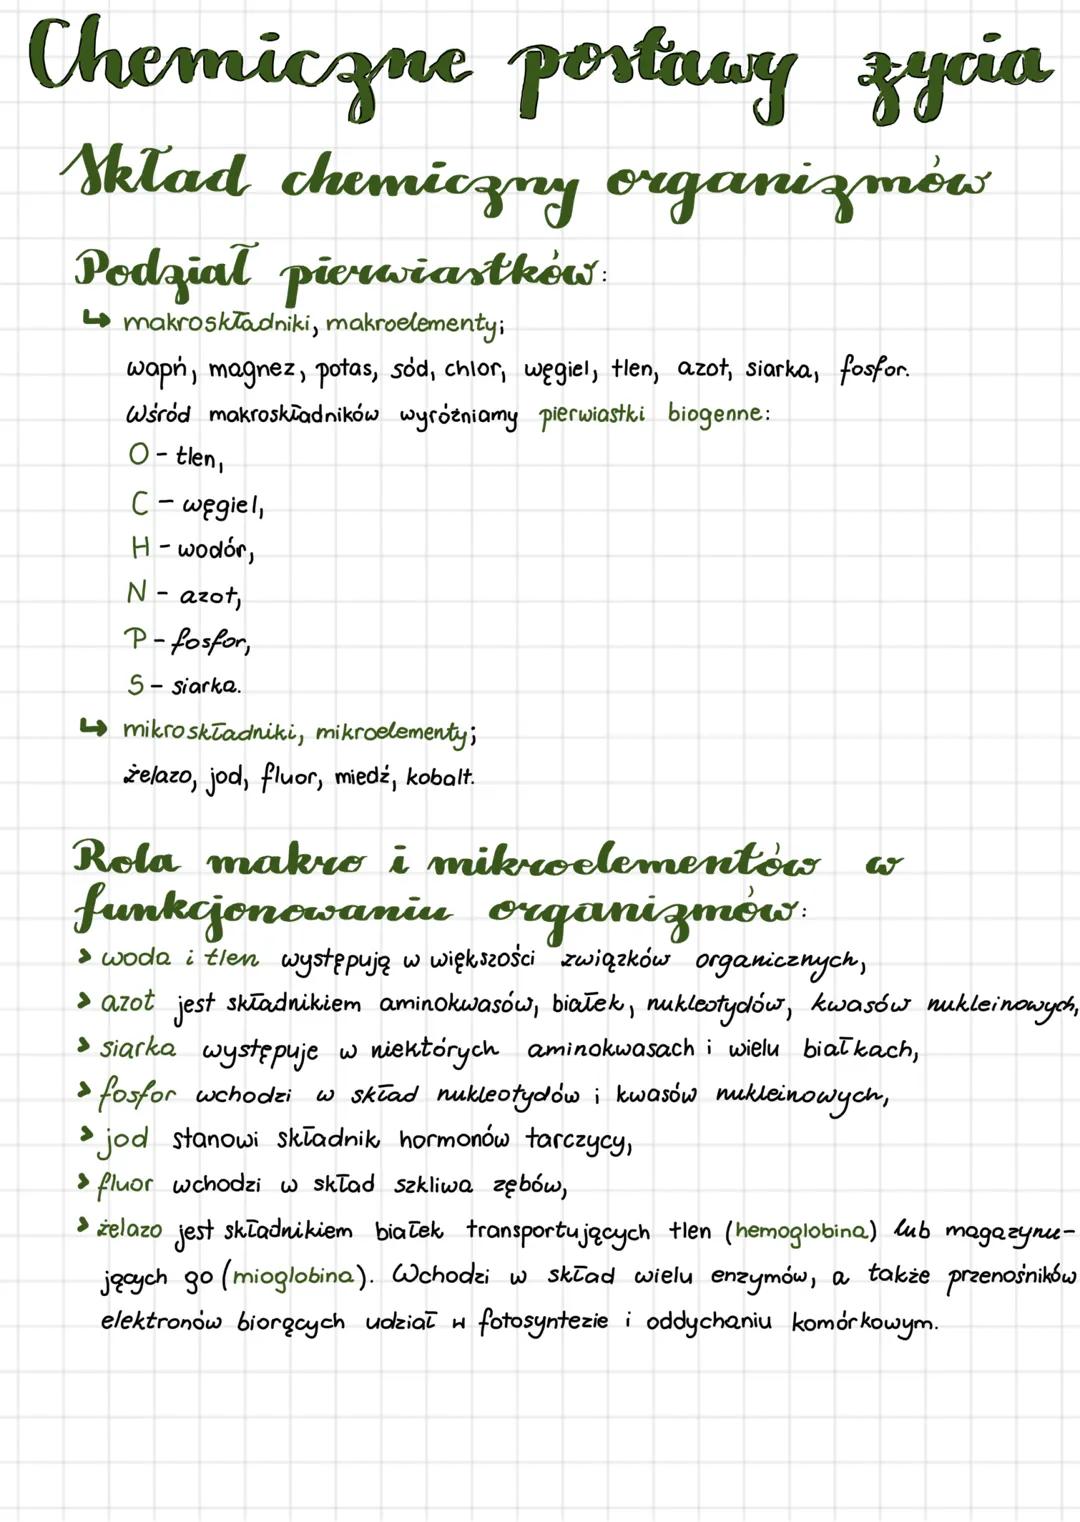 Chemiczne postawy zycia
Skład chemiczny organizmów
Podział pierwiastków:
↳ makroskładniki, makroelementy;
wapń, magnez, potas, sód, chlor, węgiel, tlen, azot, siarka, fosfor.
Wśród makroskładników wyróżniamy pierwiastki biogenne:
O - tlen,
C - węgiel,
H - wodór,
N - azot,
P - fosfor,
S - siarka.
↳ mikroskładniki, mikroelementy;
żelazo, jod, fluor, miedź, kobalt.
Rola makro i mikroelementów w
funkcjonowaniu organizmów:
> woda i tlen występują w większości związków organicznych,
> azot jest składnikiem aminokwasów, białek, nukleotydów, kwasów nukleinowych,
> siarka występuje w niektórych aminokwasach i wielu białkach,
> fosfor wchodzi w skład nukleotydów i kwasów nukleinowych,
> jod stanowi składnik hormonów tarczycy,
> fluor wchodzi w skład szkliwa zębów,
> żelazo jest składnikiem białek transportujących tlen (hemoglobina) lub magazynu-
jących go (mioglobina). Wchodzi w skład wielu enzymów, a także przenośników
elektronów biorących udział w fotosyntezie i oddychaniu komórkowym.